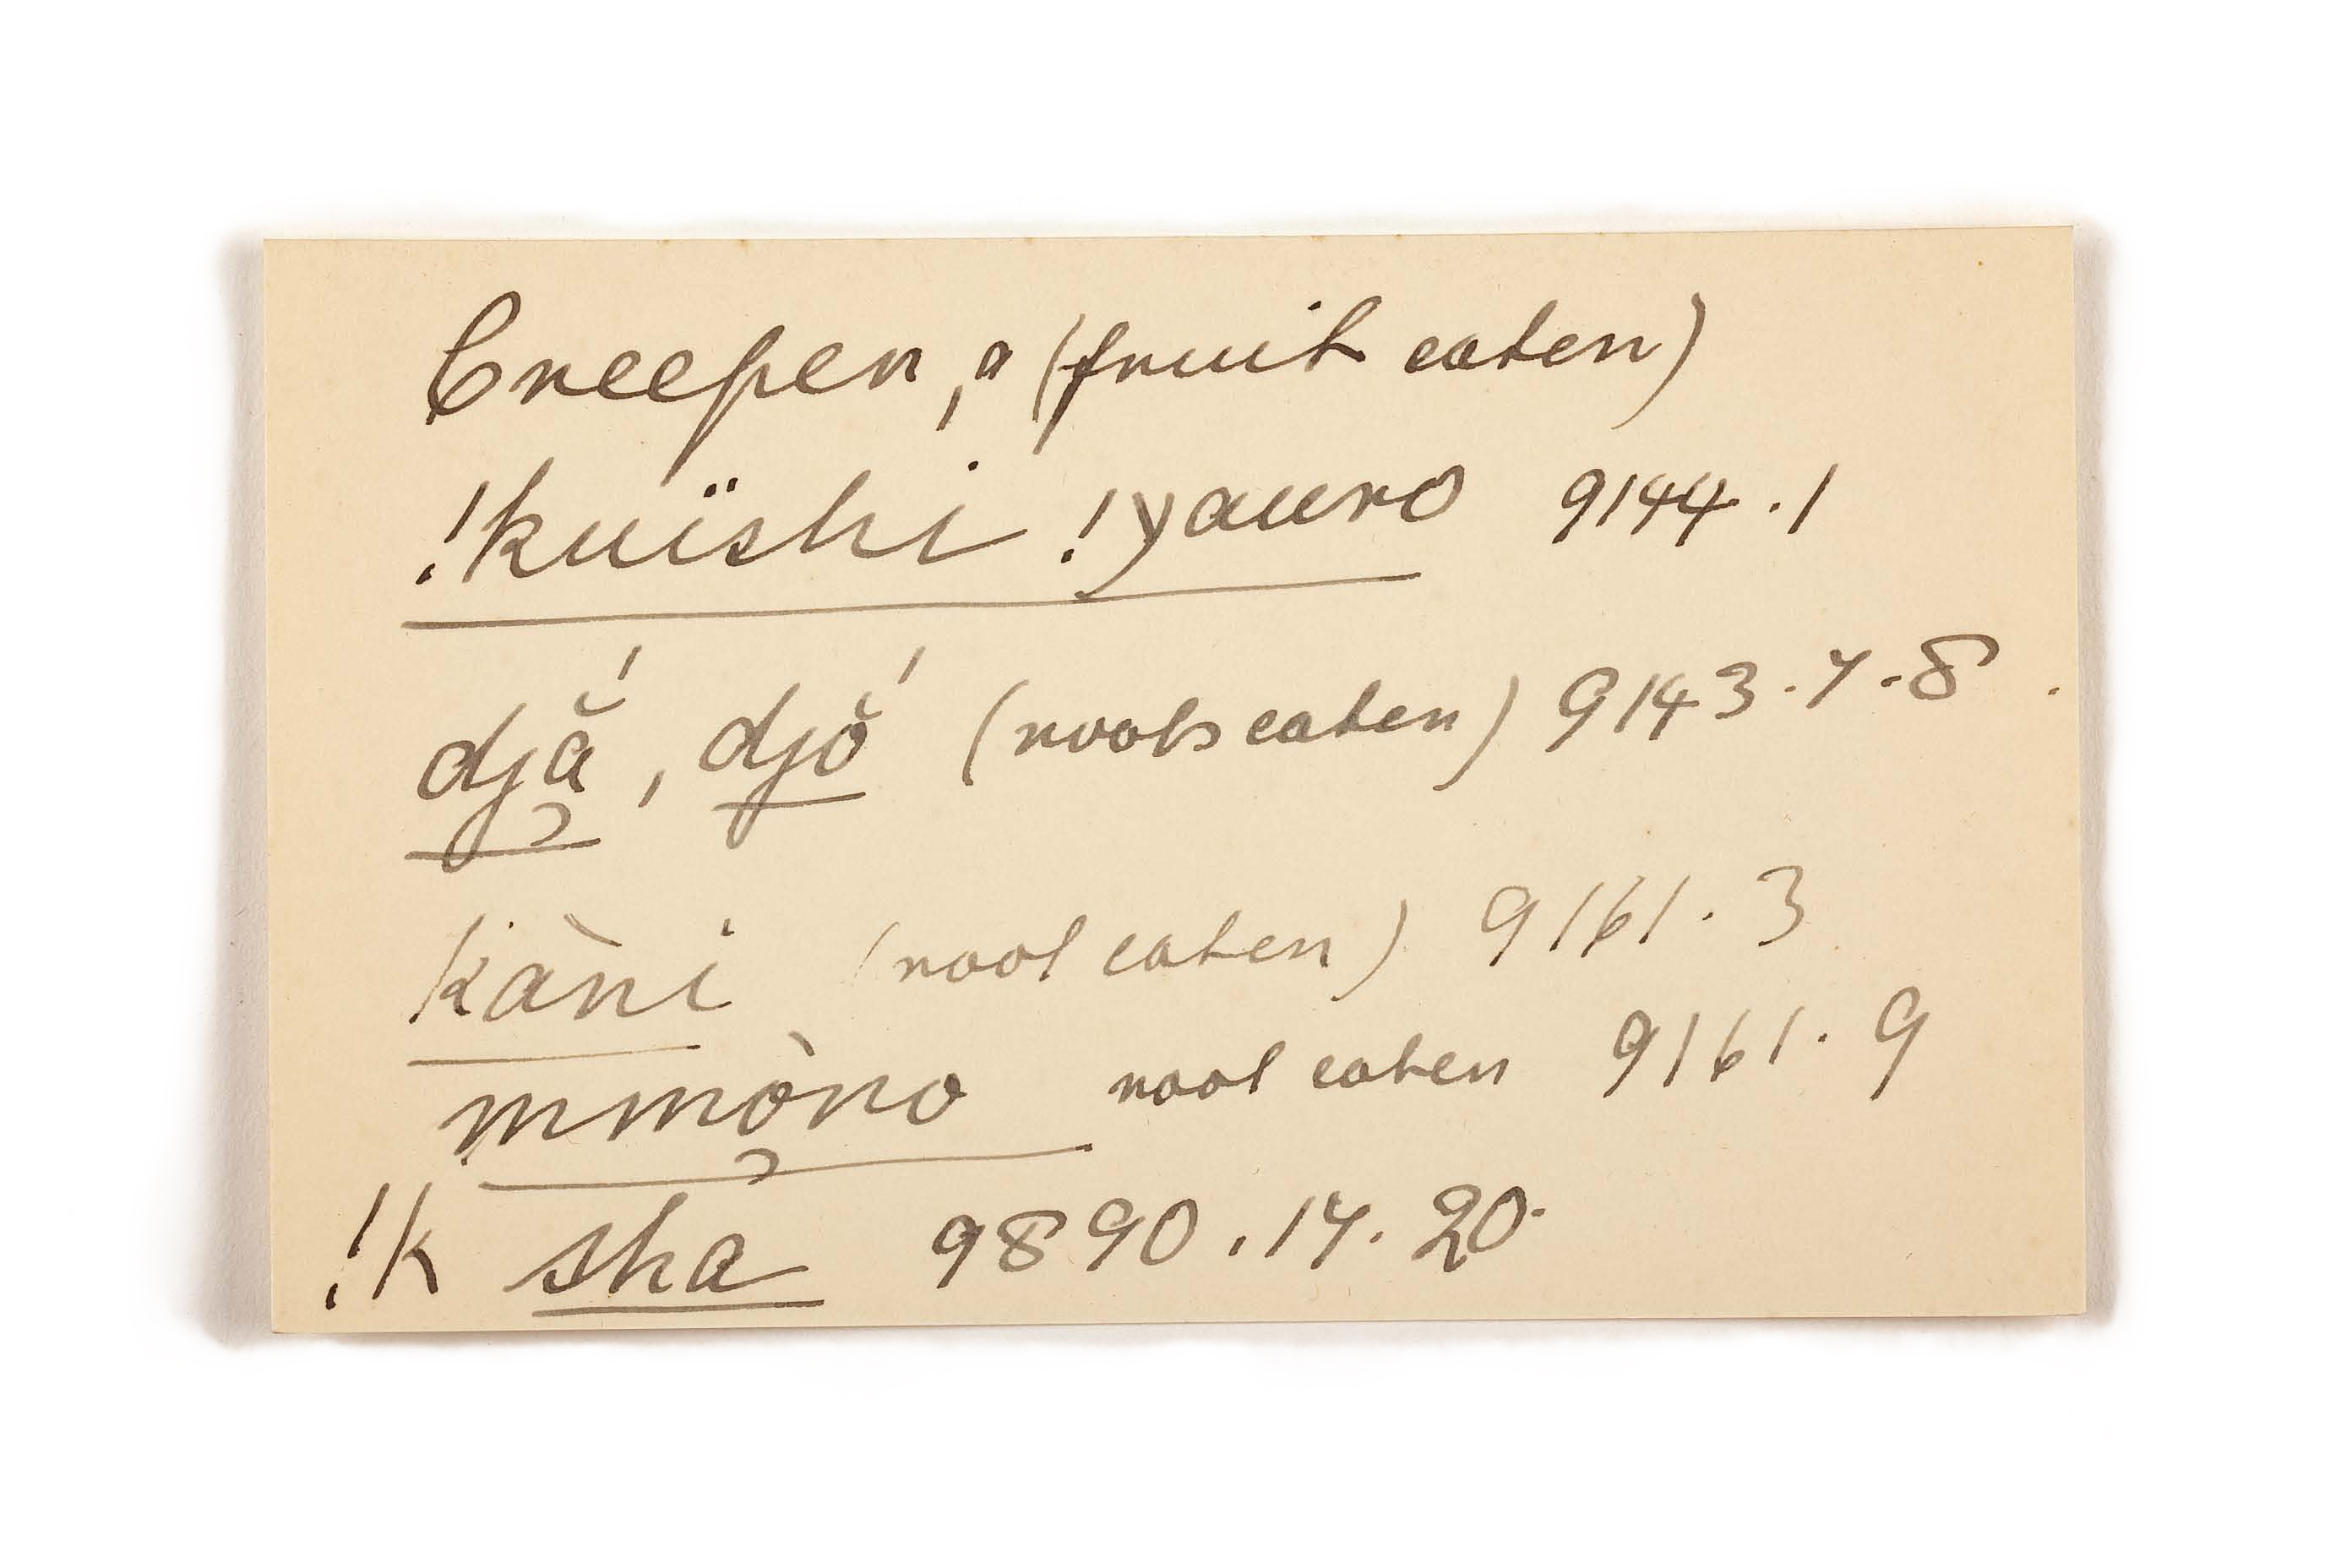 Creeper, a (fruit eaten)
!kuïshi !yauro 9144.1
djắ, djŏ́ (roots eaten) 9143.7.8.
kàni (root eaten) 9161.3
mmòno root eaten 9161.9
!k sha 9890.17.20.